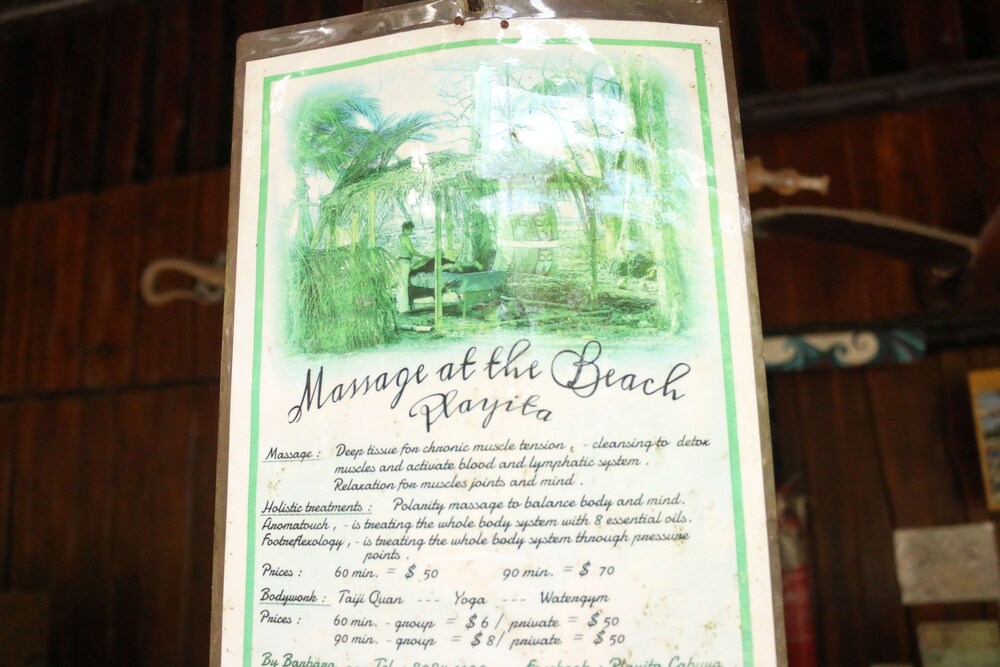 Massage at the Beach
Playita
Massage : Deep tissue for chronic muscle tension , - cleansing to detox
muscles and activate blood and lymphatic system .
Relaxation for muscles joints and mind .
Holistic treatments : Polarity massage to balance body and mind.
Aromatouch , - is treating the whole body system with 8 essential oils.
Footreflexology , - is treating the whole body system through pressure
points .
Prices : 60 min. = $ 50 90 min. = $ 70
Bodywork : Taiji Quan --- Yoga --- Watergym
Prices : 60 min. - group = $ 6 / private = $ 50
90 min. - group = $ 8 / private = $ 50
By Barbara Tel Facebook : Playita Cabuya